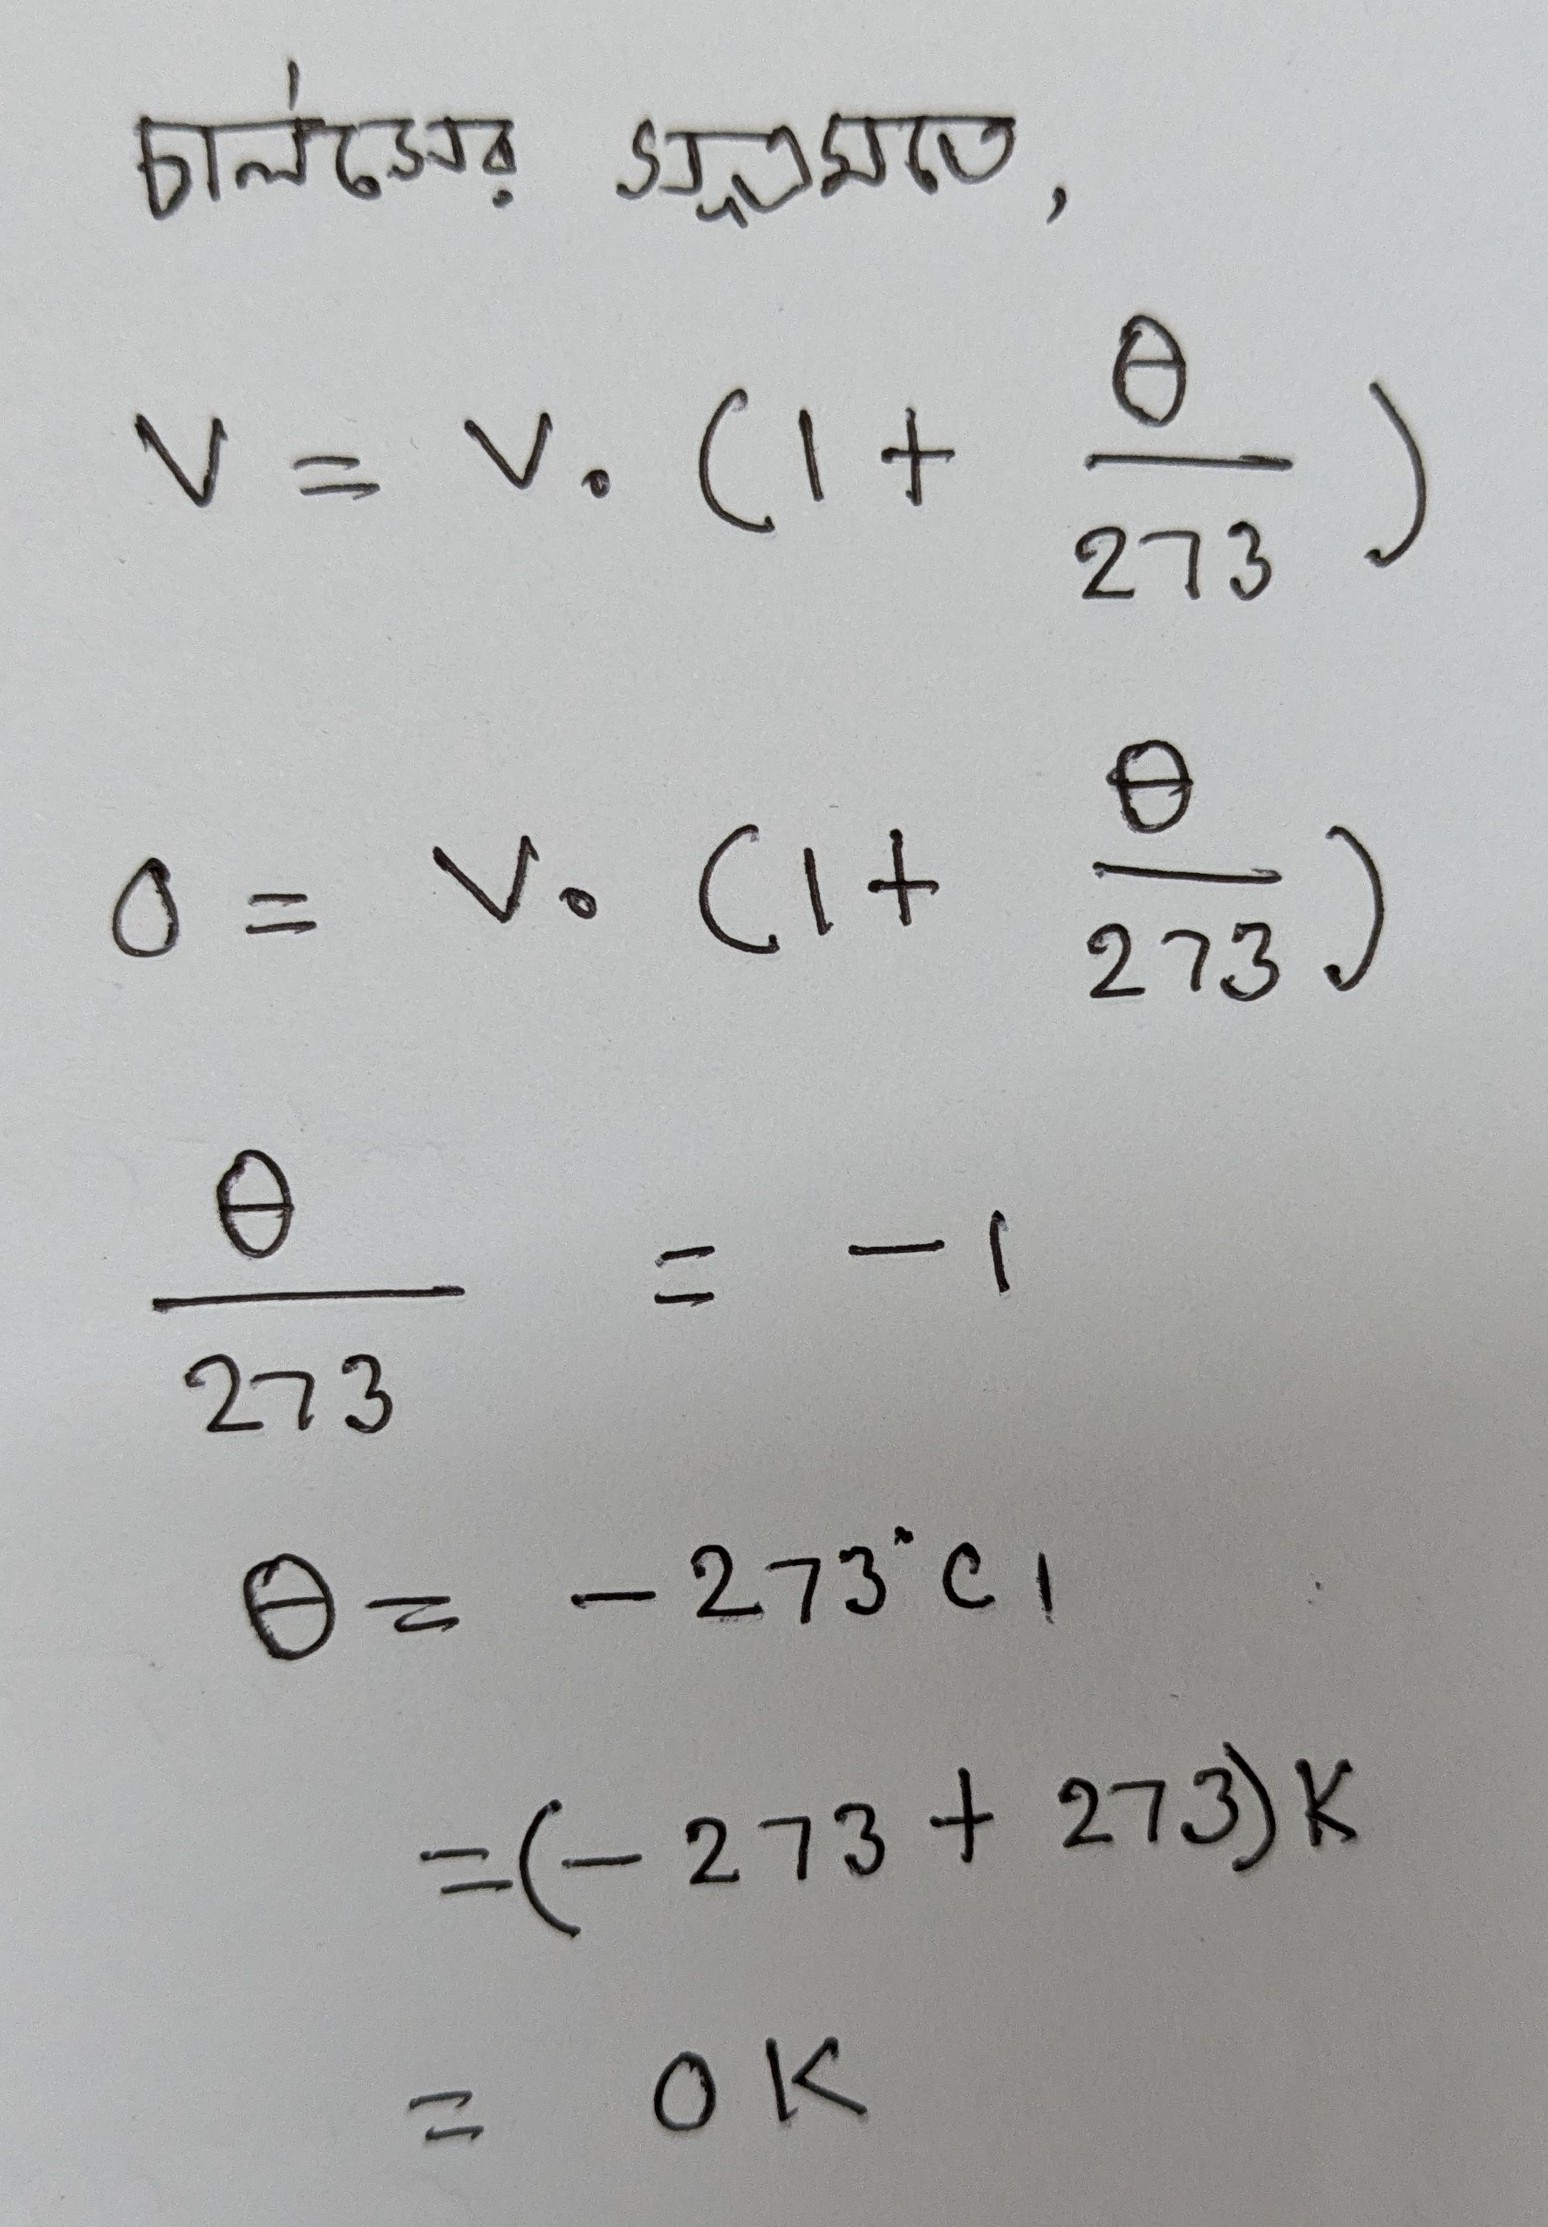 চার্লসের সূত্রমতে,
V = V₀ (1 + θ/273)
0 = V₀ (1 + θ/273)
θ/273 = -1
θ = -273°C।
= (-273 + 273) K
= 0 K